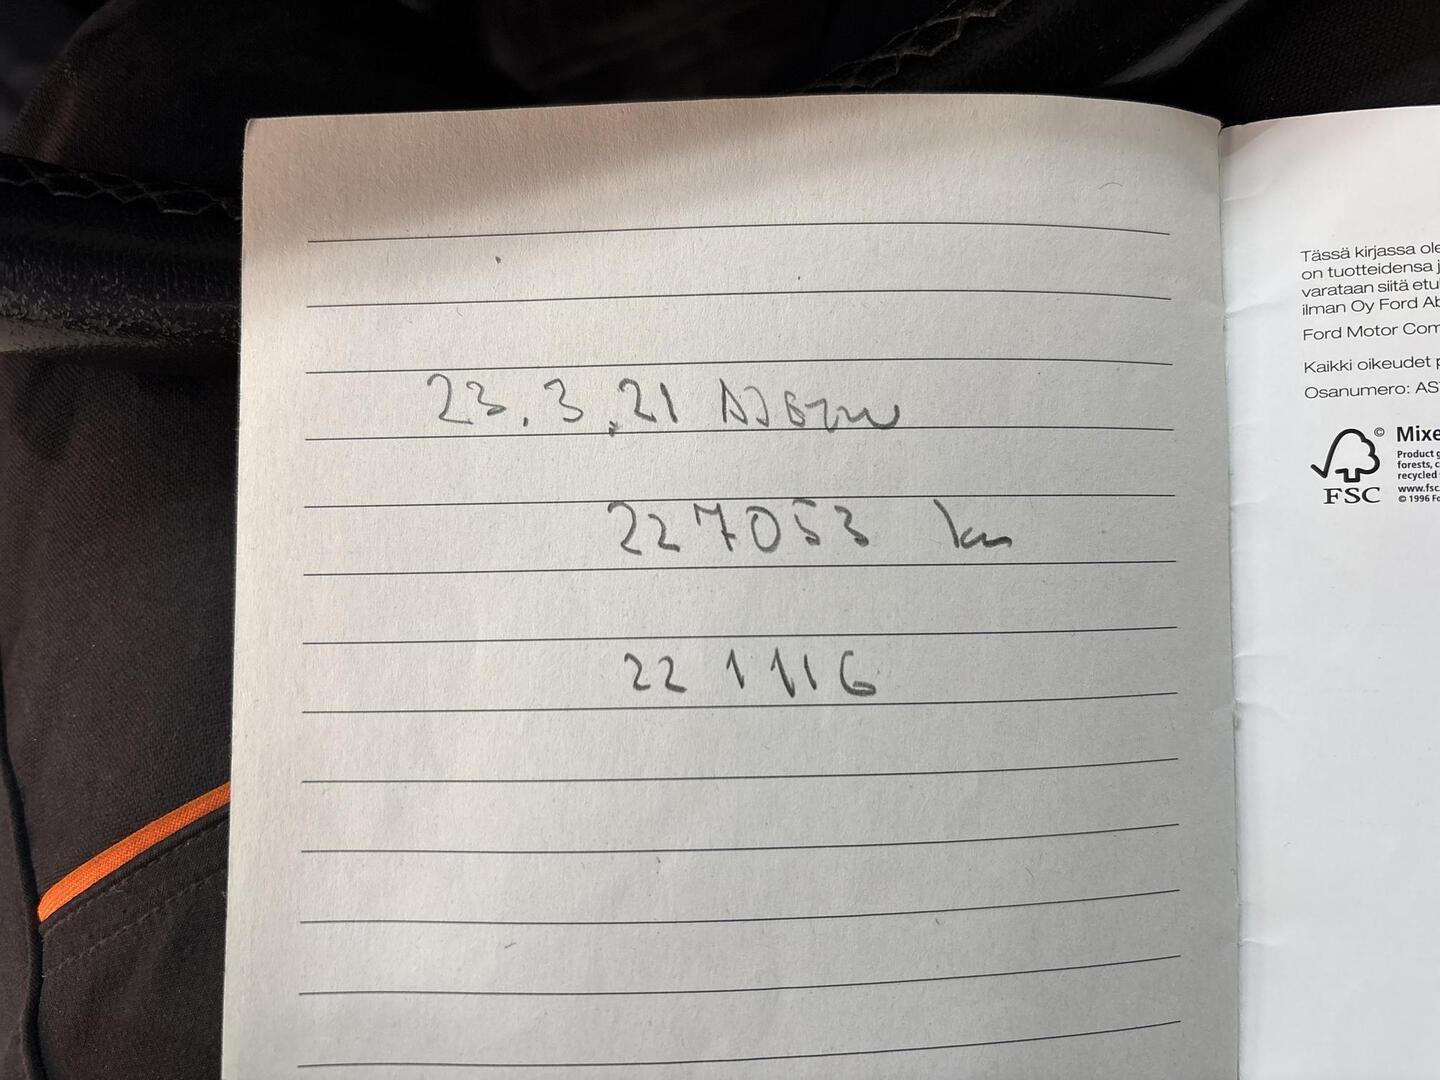 23.3.21
227053 km
221116
Tässä kirjassa ole
on tuotteidensa j
varataan siitä etu
ilman Oy Ford Ab
Ford Motor Com
Kaikki oikeudet p
Osanumero: AS
© Mixe
Product g
forests, c
recycled
www.fsc.
© 1996 Fo
FSC